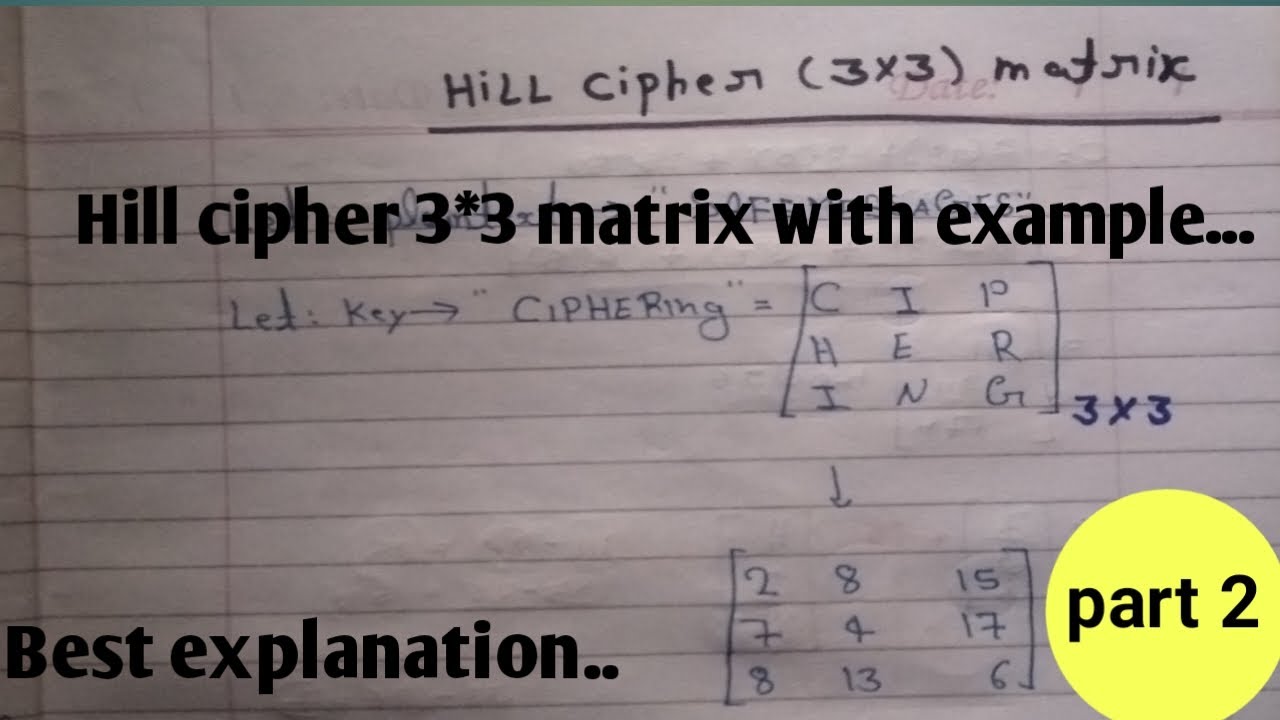 HiLL Cipher (3x3) matrix
Date:
Hill cipher 3*3 matrix with example...
Let: Key → "CIPHERing" = C I P
H E R
I N G 3x3
↓
2 8 15
7 4 17
8 13 6
part 2
Best explanation..